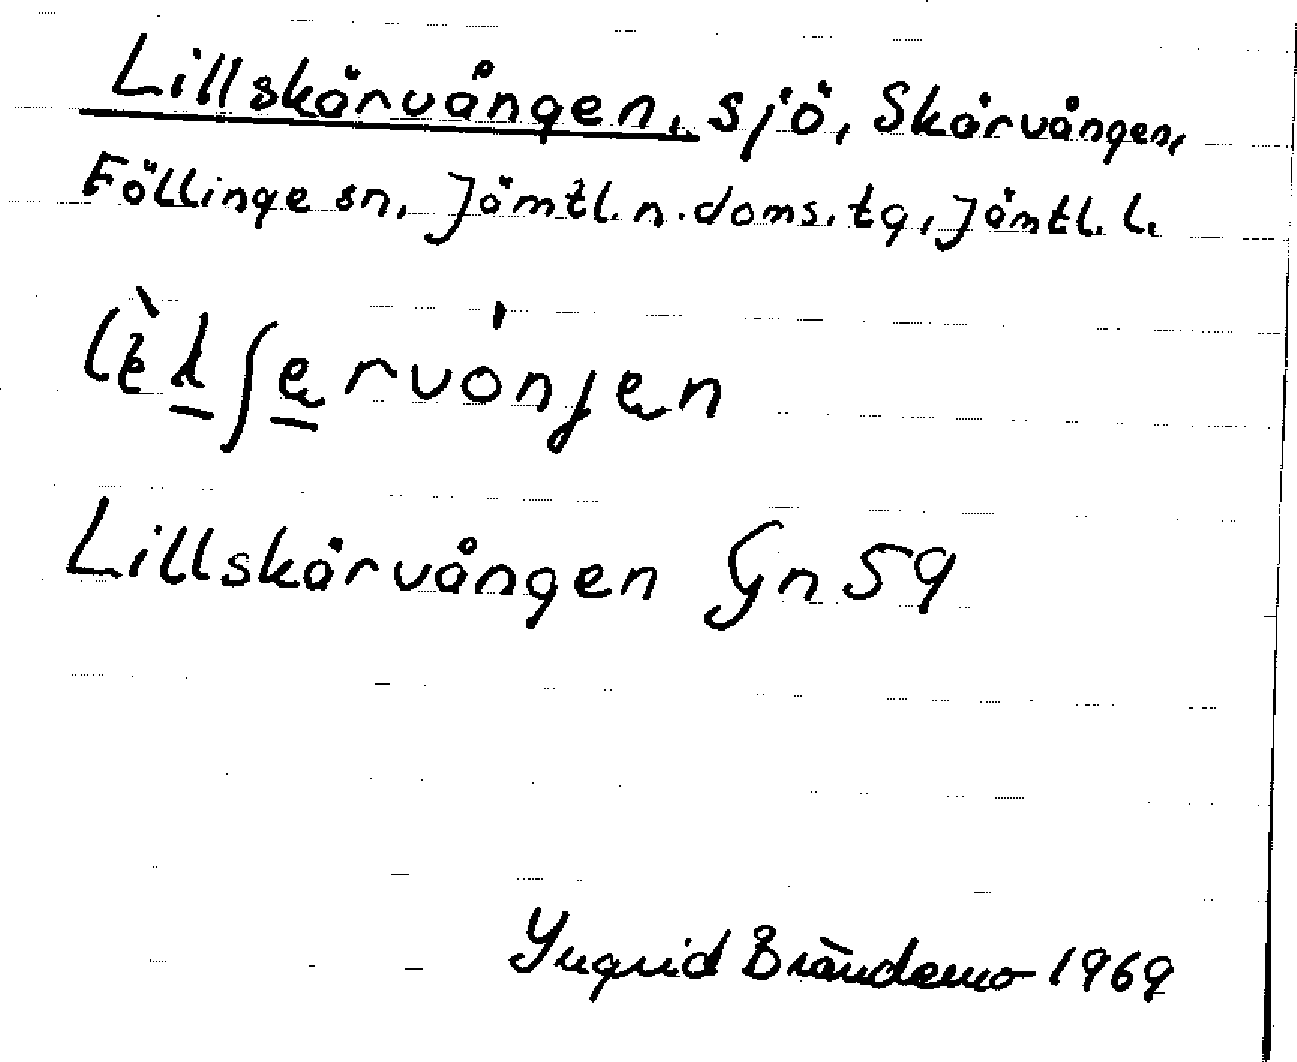 Lillskärvången, sjö, Skärvången,
Föllinge sn, Jämtl. n. doms. tg, Jämtl. l.
Lillskärvången Gn 59
Ingrid Brändemo 1969